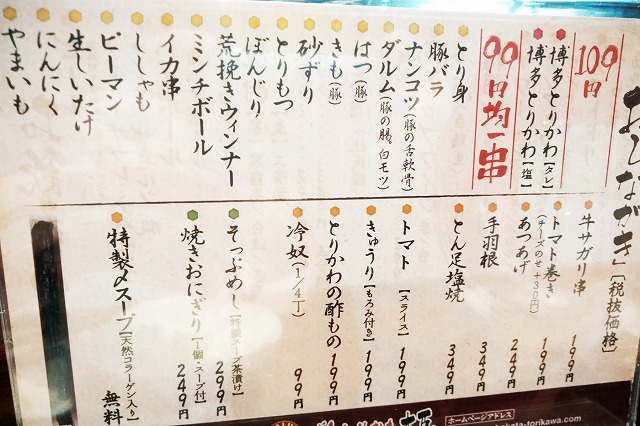 おしながき」［税抜価格］
109円
博多とりかわ［タレ］
博多とりかわ［塩］
99円均一串
とり身
豚バラ
ナンコツ（豚の舌軟骨）
ダルム（豚の腸、白モツ）
はつ（豚）
きも（豚）
砂ずり
とりもつ
ぼんじり
荒挽きウィンナー
ミンチボール
イカ串
ししゃも
ピーマン
生しいたけ
にんにく
やまいも
牛サガリ串 199円
トマト巻き 199円
（チーズのせ＋30円）
あつあげ 249円
手羽根 349円
とん足塩焼 349円
トマト［スライス］ 199円
きゅうり［もろみ付き］ 199円
とりかわの酢もの 199円
冷奴（1/4丁） 99円
そっぷめし［特製スープ茶漬け］ 299円
焼きおにぎり［1個・スープ付］ 249円
特製〆スープ［天然コラーゲン入り］ 無料
ホームページアドレス
kata-torikawa.com